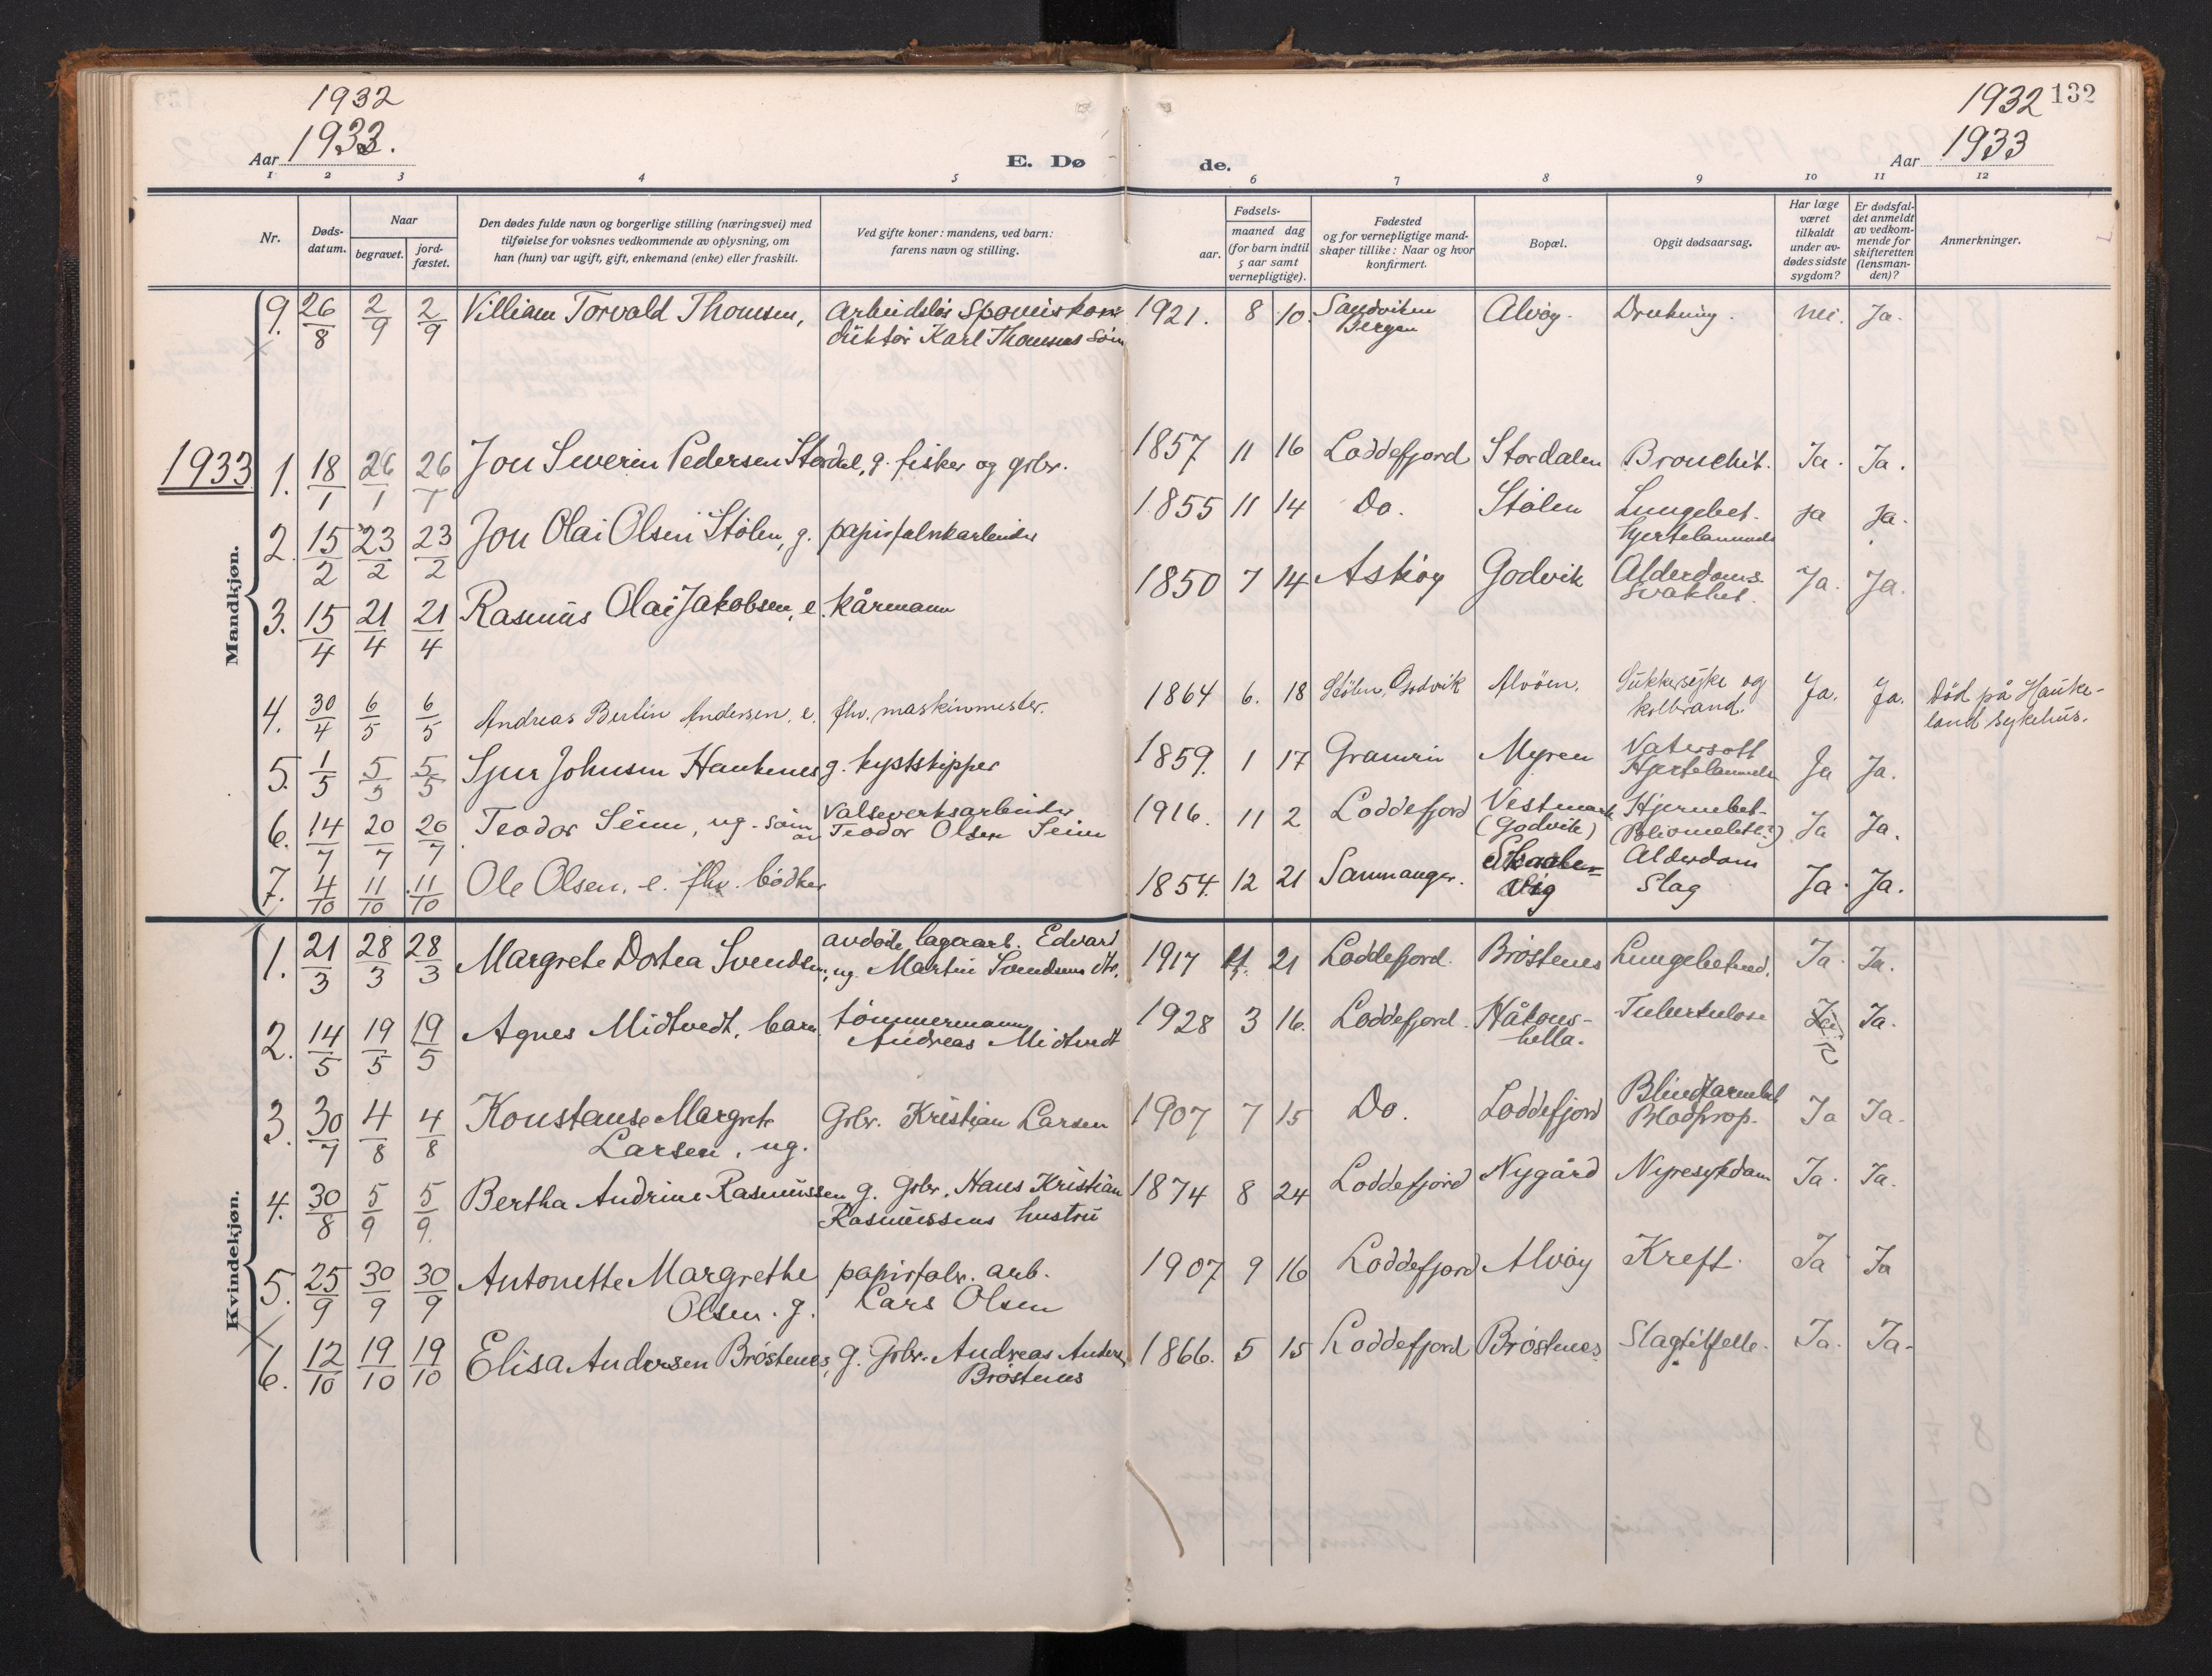 1932
Aar 1933.
E. Dø
de.
1932 132
Aar 1933
1 2 3 4 5 6 7 8 9 10 11 12
Nr.
Døds-
datum.
Naar
begravet.
jord-
fæstet.
Den dødes fulde navn og borgerlige stilling (næringsvei) med
tilføielse for voksnes vedkommende av oplysning, om
han (hun) var ugift, gift, enkemand (enke) eller fraskilt.
Ved gifte koner: mandens, ved barn:
farens navn og stilling.
Fødsels-
aar.
maaned dag
(for barn indtil
5 aar samt
vernepligtige).
Fødested
og for vernepligtige mand-
skaper tillike: Naar og hvor
konfirmert.
Bopæl.
Opgit dødsaarsag.
Har læge
været
tilkaldt
under av-
dødes sidste
sygdom?
Er dødsfal-
det anmeldt
av vedkom-
mende for
skifteretten
(lensman-
den)?
Anmerkninger.
Mandkjøn.
9. 26/8 2/9 2/9 Villiam Torvald Thomsen, arbeidsløs
Karl Thomsens søn
1921. 8 10. Sandviken
Bergen
Alvøy. Drukning. nei. Ja.
1933 1. 18/1 26/1 26/1 Jon Severin Pedersen Stordal, g. fisker og gbr.
1857 11 16 Loddefjord Stordalen Bronchit. Ja. Ja.
2. 15/2 23/2 23/2 Jon Olai Olsen Stølen, g. papirfabrikarbeider
1855 11 14 Do. Stølen Lungebet.
Hjertelammelse
ja ja.
3. 15/4 21/4 21/4 Rasmus Olai Jakobsen, e. kårmann
1850 7 14 Askøy Godvik Alderdoms-
svakhet.
Ja. Ja.
4. 30/4 6/5 6/5 Andreas Bertin Andersen, e. fhv. maskinmester.
1864 6. 18 Stølen, Godvik Alvøen. Sukkersyke og
kolbrand.
Ja. Ja. Død på Hauke-
land sykehus.
5. 1/5 5/5 5/5 Sjur Johnsen Haukenes g. kystskipper
1859. 1 17 Gramvin Myren Vatersott
Hjertelammelse
Ja Ja.
6. 14/7 20/7 20/7 Teodor Seim, ug. søn av
Valseverksarbeider
Teodor Olsen Seim
1916. 11 2 Loddefjord Vestmark
(Godvik)
Hjernebet.
Ja Ja.
7. 4/10 11/10 11/10 Ole Olsen, e. fhv. bødker
1854. 12 21 Samnanger. vig
Alderdom
Slag
Ja. Ja.
Kvindekjøn.
1. 21/3 28/3 28/3 Margrete Dortea Svendsen, ug.
avdøde lagerarb. Edvard
Martin Svendsens dtr.
1917 21 Loddefjord. Brøstenes Lungebetend. Ja. Ja.
2. 14/5 19/5 19/5 Agnes Midtvedt, barn. tømmermann
Andreas Midtvedt
1928 3 16. Loddefjord. Håkons-
hella.
Tuberkulose Ja.
3. 30/7 4/8 4/8 Konstanse Margrete
Larsen, ug.
Gbr. Kristian Larsen
1907 7 15 Do. Loddefjord Blindtarmbet
Blodprop.
Ja Ja.
4. 30/8 5/9 5/9 Bertha Andrine Rasmussen g. Gbr. Hans Kristian
Rasmussens hustru
1874 8 24 Loddefjord Nygård Nyresykdom Ja. Ja.
5. 25/9 30/9 30/9 Antonette Margrethe
Olsen. g.
papirfabr. arb.
Lars Olsen
1907 9 16 Loddefjord Alvøy Kreft. Ja Ja
6. 12/10 19/10 19/10 Elisa Andersen Brøstenes, g. Gbr. Andreas Anders.
Brøstenes
1866. 5 15 Loddefjord Brøstenes Slagtilfelle. Ja. Ja.